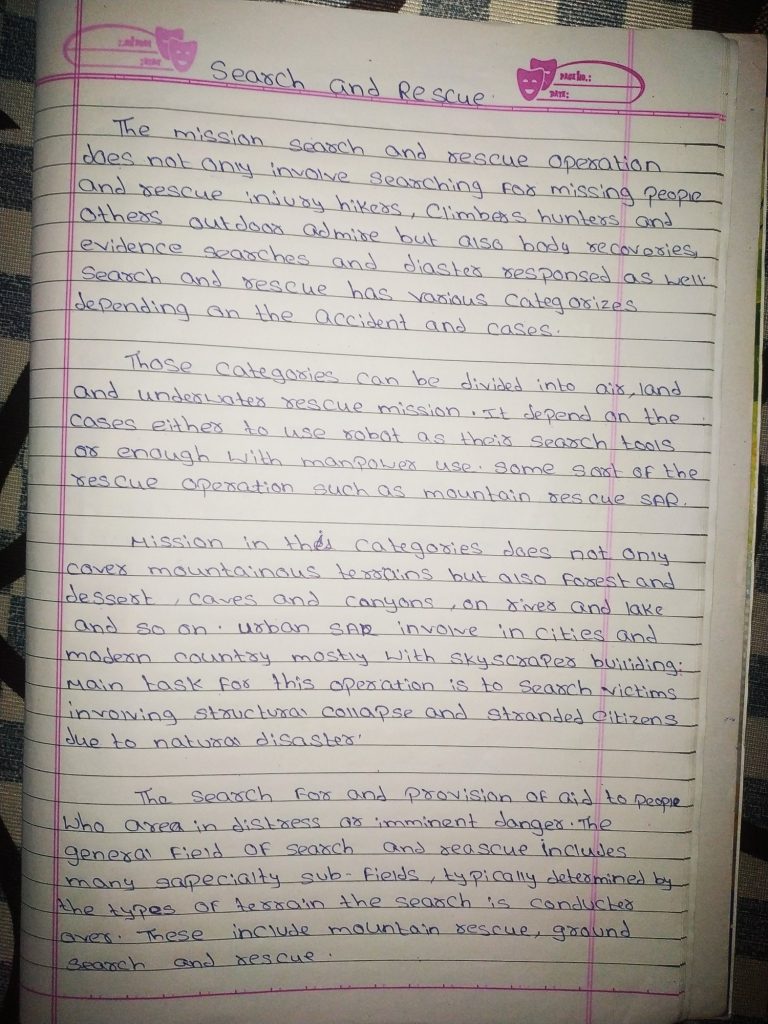 Search and Rescue
PAGE No.:
DATE:
The mission search and rescue operation
does not only involve searching for missing people
and rescue injury hikers, Climbers hunters and
Others outdoor admire but also body recoveries,
evidence searches and diaster responsed as well.
Search and rescue has various categorizes
depending on the accident and cases.
Those categories can be divided into air, land
and underwater rescue mission. It depend on the
cases either to use robot as their search tools
or enough with manpower use. some sort of the
rescue operation such as mountain rescue SAR.
Mission in this categories does not only
cover mountainous terrains but also forest and
dessert, caves and canyons, on river and lake
and so on. urban SAR involve in cities and
modern country mostly with skyscraper building:
Main task for this operation is to search victims
involving structural collapse and stranded citizens
due to natural disaster.
The search for and provision of aid to people
who area in distress or imminent danger. The
general field of search and reascue includes
many sapecialty sub-fields, typically determined by
the types of terrain the search is conducter
over. These include mountain rescue, ground
search and rescue.